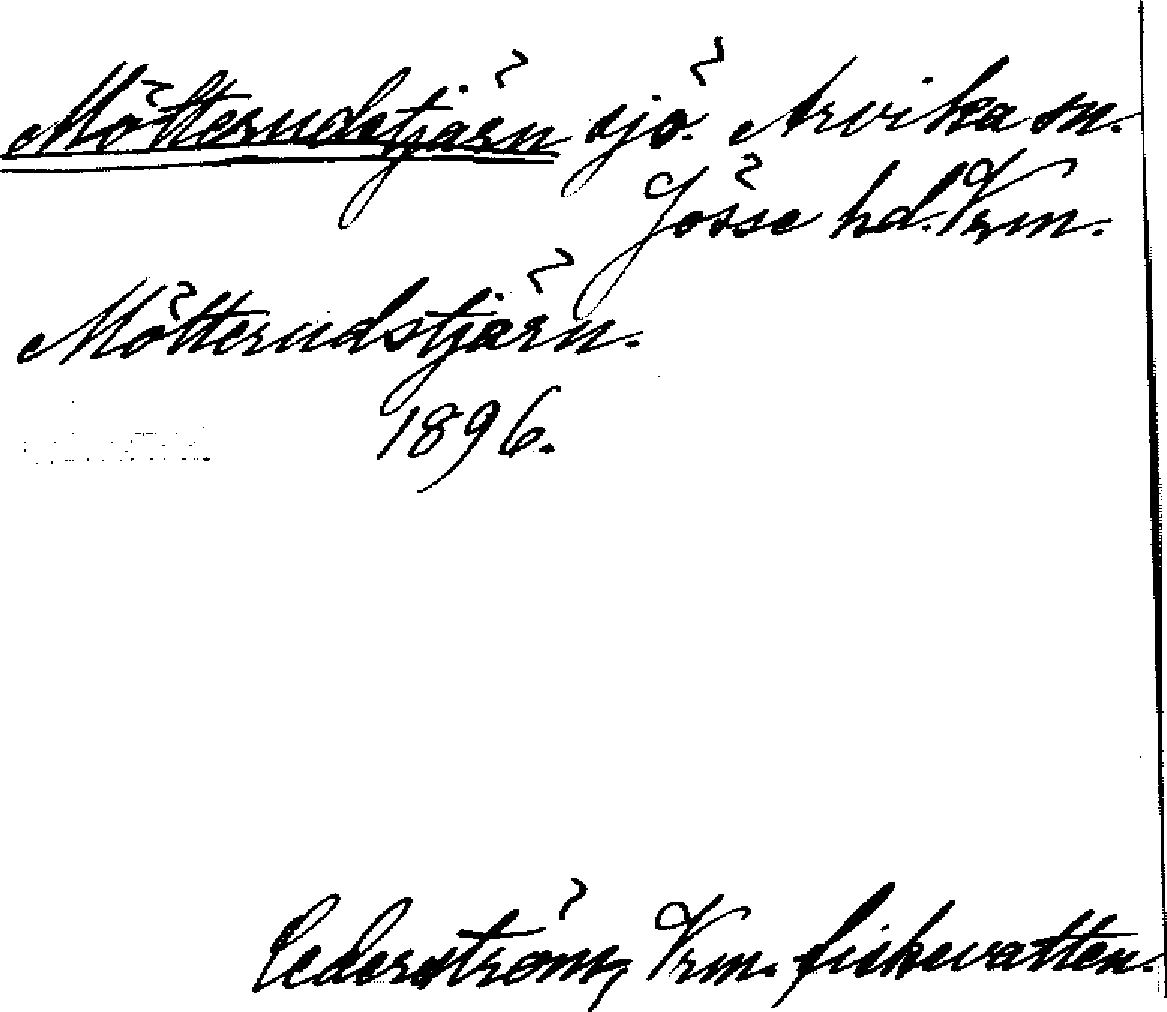 Mötterudstjärn sjö. Arvika sn.
Jösse hd. Vrm.
Mötterudstjärn.
1896.
Cederström, Vrm. fiskevatten.